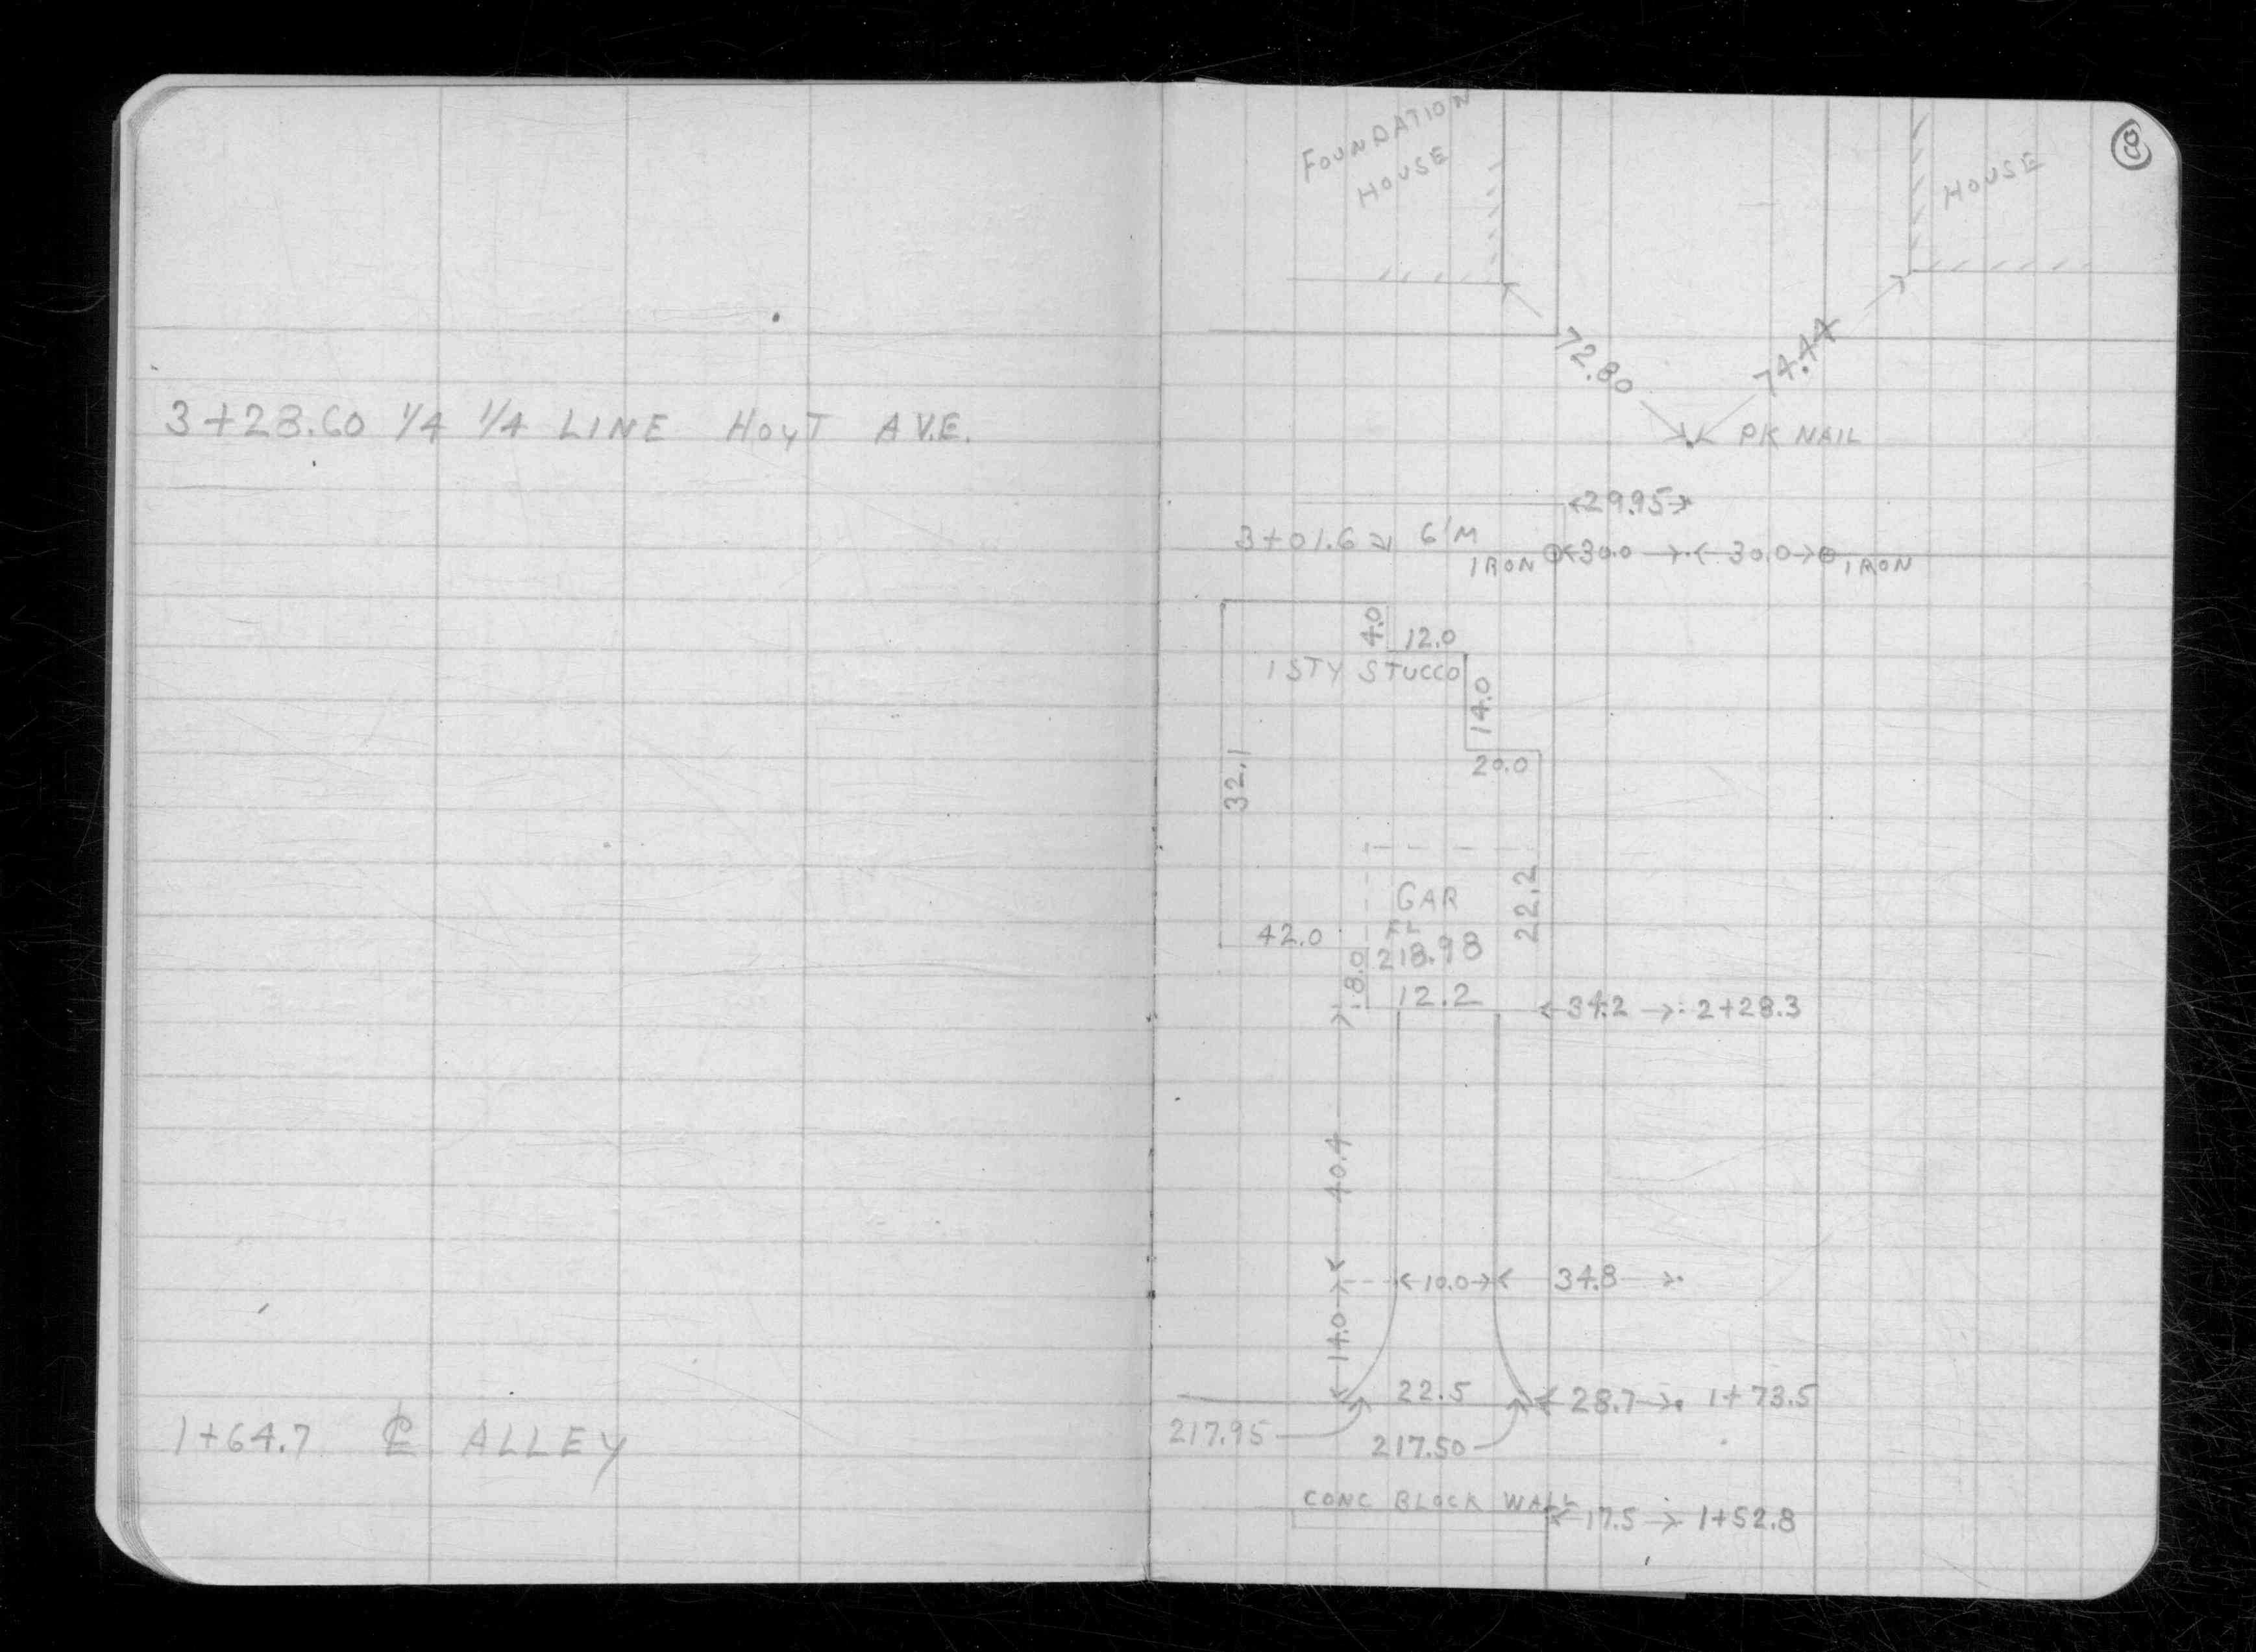 3+28.60 1/4 1/4 LINE HOYT AVE.
1+64.7 ℄ ALLEY
8
FOUNDATION
HOUSE
HOUSE
72.80
74.44
PK NAIL
29.95
3+01.6
IRON
30.0
30.0
IRON
4.0
12.0
1 STY STUCCO
14.0
20.0
32.1
GAR
FL
22.2
42.0
218.98
8.0
12.2
34.2
2+28.3
40.4
10.0
34.8
14.0
22.5
28.7
1+73.5
217.95
217.50
CONC BLOCK WALL
17.5
1+52.8